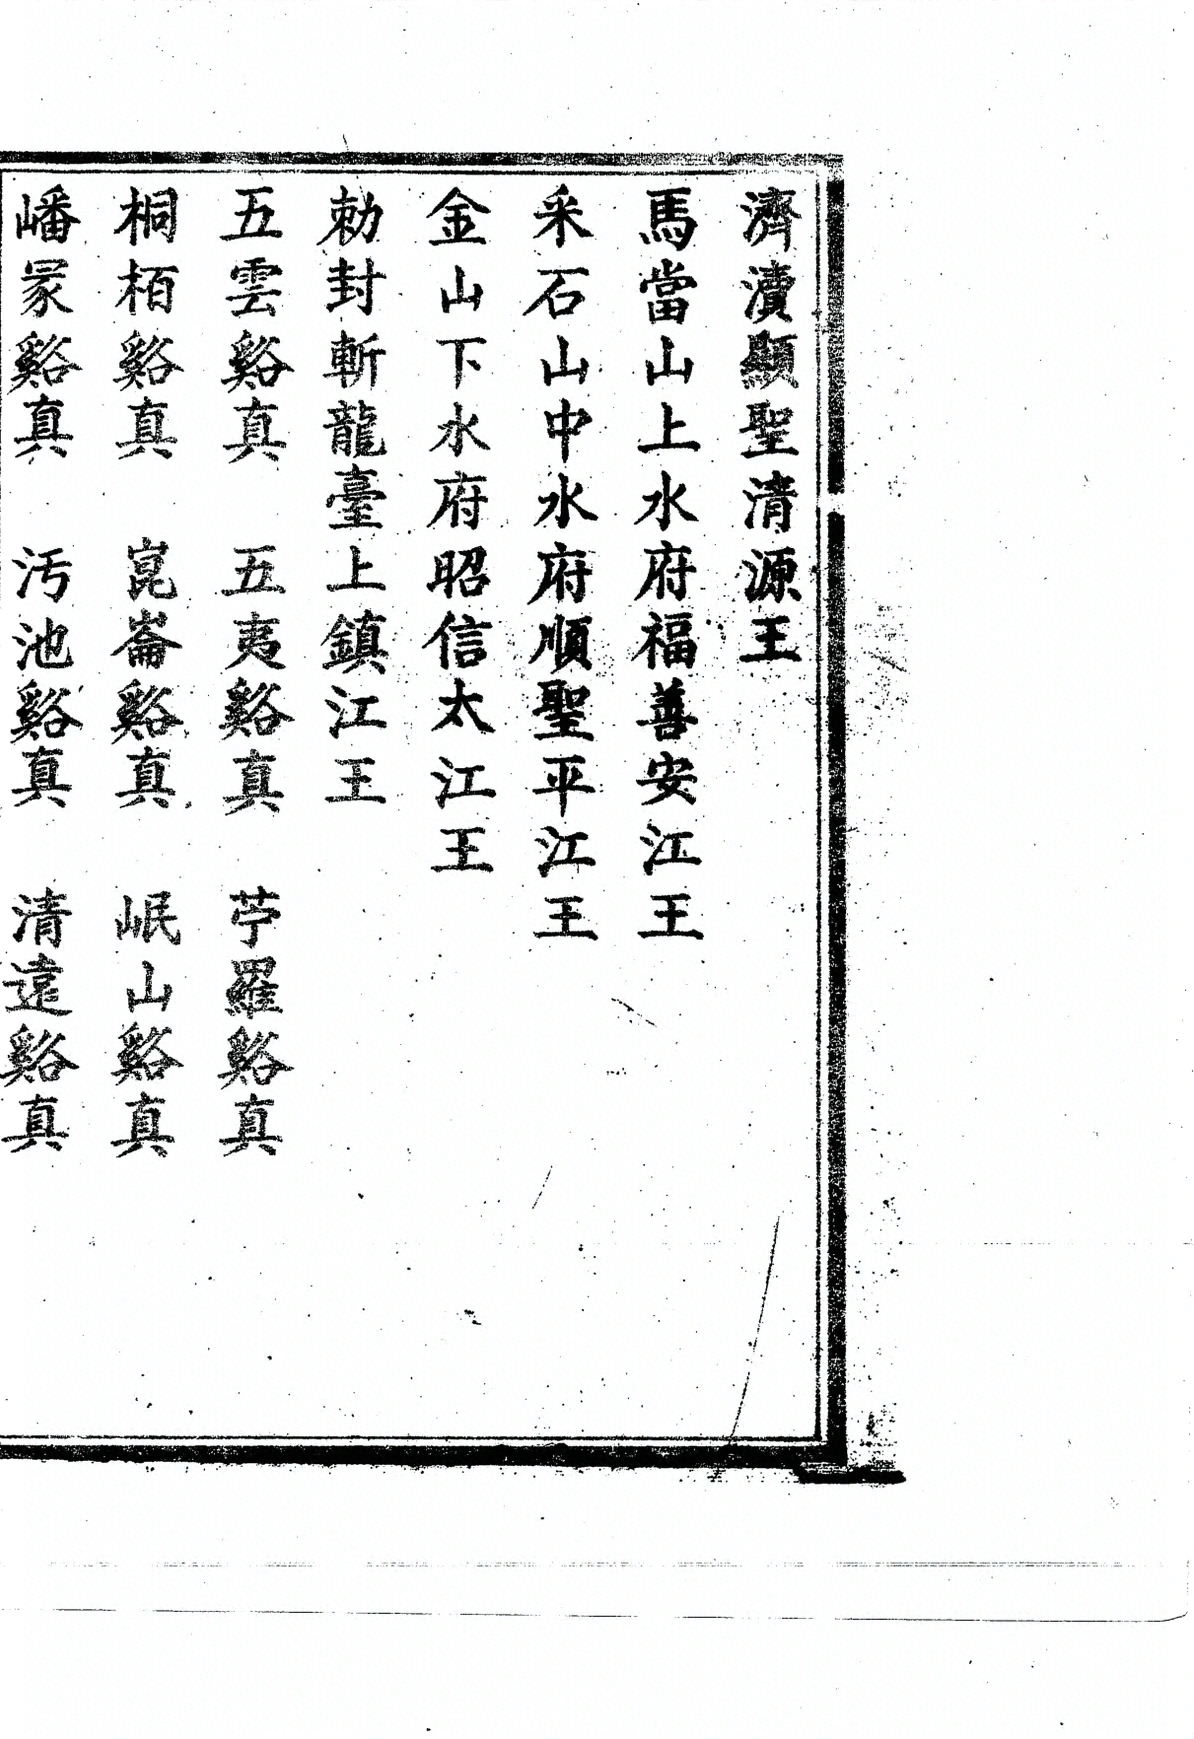 濟瀆顯聖清源王
馬當山上水府福善安江王
采石山中水府順聖平江王
金山下水府昭信太江王
勑封斬龍臺上鎮江王
五雲谿真　五夷谿真　苧羅谿真
桐栢谿真　崑崙谿真　岷山谿真
嶓冢谿真　汚池谿真　清遠谿真